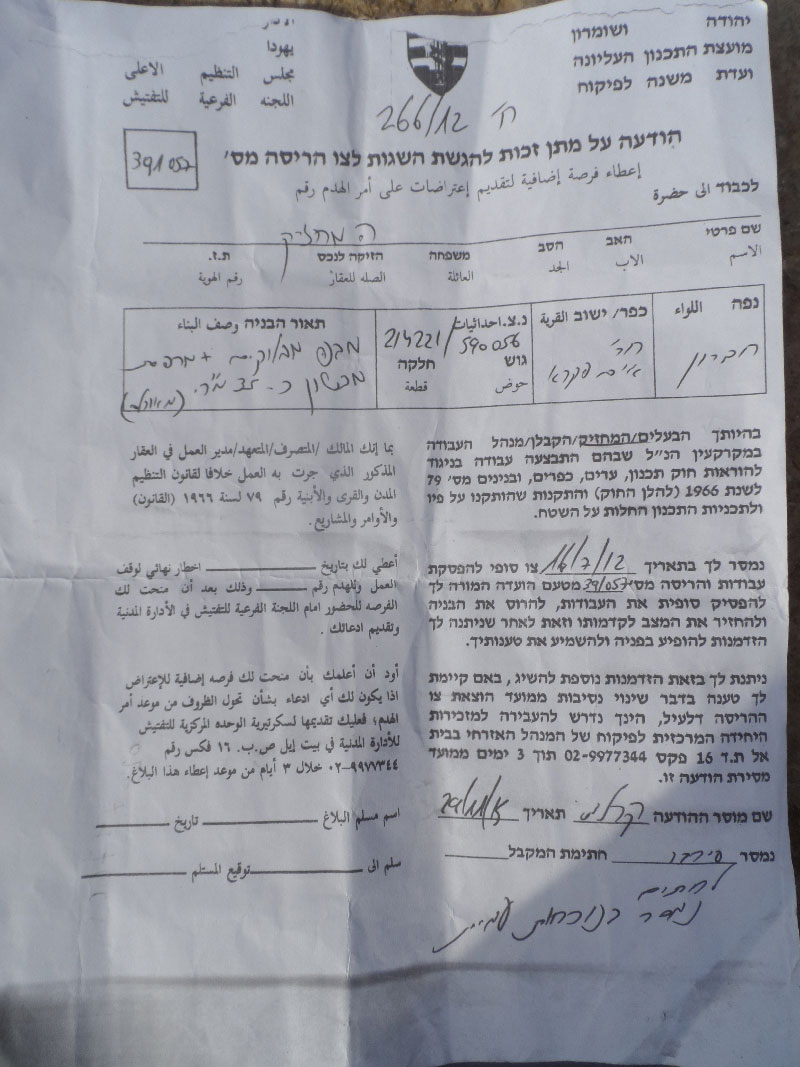 יהודה ושומרון
מועצת התכנון העליונה
ועדת משנה לפיקוח
يهودا
مجلس التنظيم الاعلى
اللجنه الفرعية للتفتيش
ח' 266/12
הודעה על מתן זכות להגשת השגות לצו הריסה מס'
391057
إعطاء فرصة إضافية لتقديم إعتراضات على أمر الهدم رقم
לכבוד الى حضرة
המחזיק
שם פרטי האב הסב משפחה הזיקה לנכס ת.ז.
الاسم الاب الجد العائلة الصله للعقار رقم الهوية
נפה اللواء
חברון
כפר/ ישוב القرية
חר'
נ.צ. احداثيات
214221/590056
גוש חלקה
حوض قطعة
תאור הבניה وصف البناء
מבנה מבלוקים + מרפסת
מבטון כ- 35 מ"ר.
בהיותך הבעלים/המחזיק/הקבלן/מנהל העבודה
במקרקעין הנ"ל שבהם התבצעה עבודה בניגוד
להוראות חוק תכנון, ערים, כפרים, ובנינים מס' 79
לשנת 1966 (להלן החוק) והתקנות שהותקנו על פיו
ולתכניות התכנון החלות על השטח.
بما إنك المالك /المتصرف/المتعهد/مدير العمل في العقار
المذكور الذي جرت به العمل خلافا لقانون التنظيم
المدن والقرى والأبنية رقم ٧٩ لسنة ١٩٦٦ (القانون)
والأوامر والمشاريع.
נמסר לך בתאריך 16/7/12 צו סופי להפסקת
עבודות והריסה מס' 391057 מטעם הועדה המורה לך
להפסיק סופית את העבודות, להרוס את הבניה
ולהחזיר את המצב לקדמותו וזאת לאחר שניתנה לך
הזדמנות להופיע בפניה ולהשמיע את טענותיך.
أعطي لك بتاريخ ـــــــ اخطار نهائي لوقف
العمل وللهدم رقم ـــــــ وذلك بعد أن منحت لك
الفرصه للحضور امام اللجنة الفرعية للتفتيش في الأدارة المدنية
وتقديم ادعائك .
ניתנת לך בזאת הזדמנות נוספת להשיג, באם קיימת
לך טענה בדבר שינוי נסיבות ממועד הוצאת צו
ההריסה דלעיל, הינך נדרש להעבירה למזכירות
היחידה המרכזית לפיקוח של המנהל האזרחי בבית
אל ת.ד 16 פקס 02-9977344 תוך 3 ימים ממועד
מסירת הודעה זו.
أود أن أعلمك بأن منحت لك فرصه إضافية للإعتراض
اذا يكون لك أي ادعاء بشأن تحول الظروف من موعد أمر
الهدم؛ فعليك تقديمها لسكرتيرية الوحده المركزية للتفتيش
للأدارة المدنية في بيت إيل ص.ب. ١٦ فكس رقم
٠٢-٩٩٧٧٣٤٤ خلال ٣ أيام من موعد إعطاء هذا البلاغ.
שם מוסר ההודעה תאריך
נמסר חתימת המקבל
اسم مسلم البلاغ ـــــــ تاريخ ـــــــ
سلم الى ـــــــ توقيع المستلم ـــــــ
נמסר בנוכחות